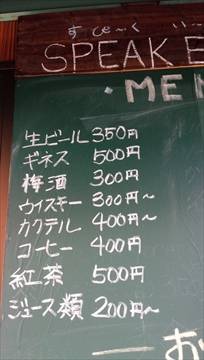 すぴ〜く い〜
SPEAK E
・MEN
生ビール 350円
ギネス 500円
梅酒 300円
ウイスキー 300円〜
カクテル 400円〜
コーヒー 400円
紅茶 500円
ジュース類 200円〜